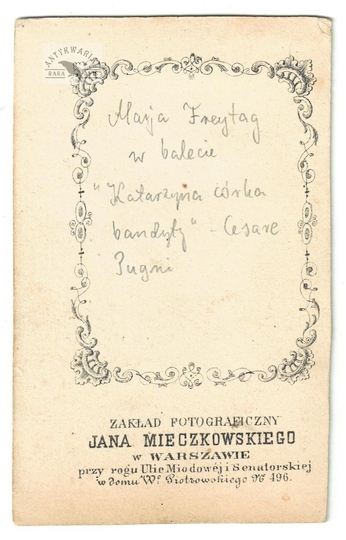 ANTYKWARIAT
RARA
Marja Freytag
w balecie
"Katarzyna córka
bandyty" - Cesare
Pugni
ZAKŁAD FOTOGRAFICZNY
JANA MIECZKOWSKIEGO
w WARSZAWIE
przy rogu Ulic Miodowéj i Senatorskiej
w domu Wº Piotrowskiego Nº 496.